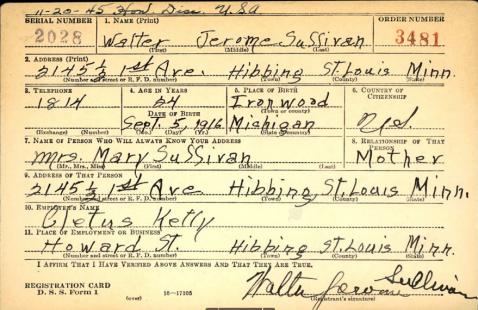 11-20-45 Hon. Disc. U.S.A
SERIAL NUMBER 1. NAME (Print) ORDER NUMBER
2028 Walter Jerome Sullivan 3481
(First) (Middle) (Last)
2. ADDRESS (Print)
2145 1/2 1st Ave. Hibbing St. Louis Minn.
(Number and street or R. F. D. number) (Town) (County) (State)
3. TELEPHONE 4. AGE IN YEARS 5. PLACE OF BIRTH 6. COUNTRY OF CITIZENSHIP
1814 24 Ironwood U.S.
DATE OF BIRTH (Town or county)
Sept. 5, 1916 Michigan
(Exchange) (Number) (Mo.) (Day) (Yr.) (State or country)
7. NAME OF PERSON WHO WILL ALWAYS KNOW YOUR ADDRESS 8. RELATIONSHIP OF THAT PERSON
Mrs. Mary Sullivan Mother
(Mr., Mrs., Miss) (First) (Middle) (Last)
9. ADDRESS OF THAT PERSON
2145 1/2 1st Ave Hibbing St. Louis Minn.
(Number and street or R. F. D. number) (Town) (County) (State)
10. EMPLOYER'S NAME
Cletus Kelly
11. PLACE OF EMPLOYMENT OR BUSINESS
Howard St. Hibbing St. Louis Minn.
(Number and street or R. F. D. number) (Town) (County) (State)
I AFFIRM THAT I HAVE VERIFIED ABOVE ANSWERS AND THAT THEY ARE TRUE.
Walter Jerome Sullivan
REGISTRATION CARD
D. S. S. Form 1 (over) 16-17105 (Registrant's signature)